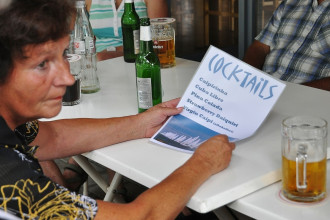 COCKTAILS
Caipirinha
Cuba Libre
Pina Colada
Strawberry Daiquiri